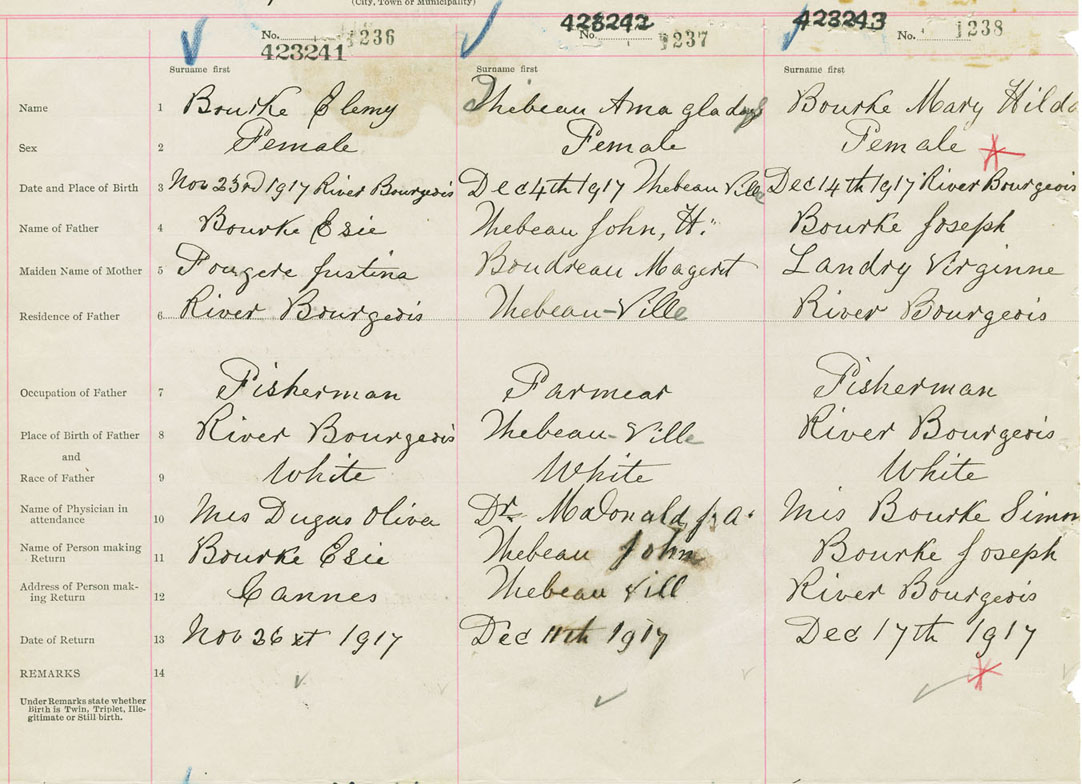 (City, Town or Municipality)
423241 423242 423243
No. 1236 No. 1237 No. 1238
Surname first Surname first Surname first
Name 1 Bourke Elemy Thebeau Ama gladys Bourke Mary Hilda
Sex 2 Female Female Female
Date and Place of Birth 3 Nov 23rd 1917 River Bourgeois Dec 4th 1917 Thebeau Ville Dec 14th 1917 River Bourgeois
Name of Father 4 Bourke Esie Thebeau John, H. Bourke Joseph
Maiden Name of Mother 5 Fougere Justina Boudreau Magerit Landry Virginne
Residence of Father 6 River Bourgeois Thebeau-Ville River Bourgeois
Occupation of Father 7 Fisherman Farmear Fisherman
Place of Birth of Father 8 River Bourgeois Thebeau-Ville River Bourgeois
and
Race of Father 9 White White White
Name of Physician in
attendance 10 Mis Dugas Oliva Dr. McDonald J. A. Mis Bourke Simon
Name of Person making
Return 11 Bourke Esie Thebeau John Bourke Joseph
Address of Person mak-
ing Return 12 Cannes Thebeau vill River Bourgeois
Date of Return 13 Nov 26 xt 1917 Dec 11th 1917 Dec 17th 1917
REMARKS 14
Under Remarks state whether
Birth is Twin, Triplet, Ille-
gitimate or Still birth.